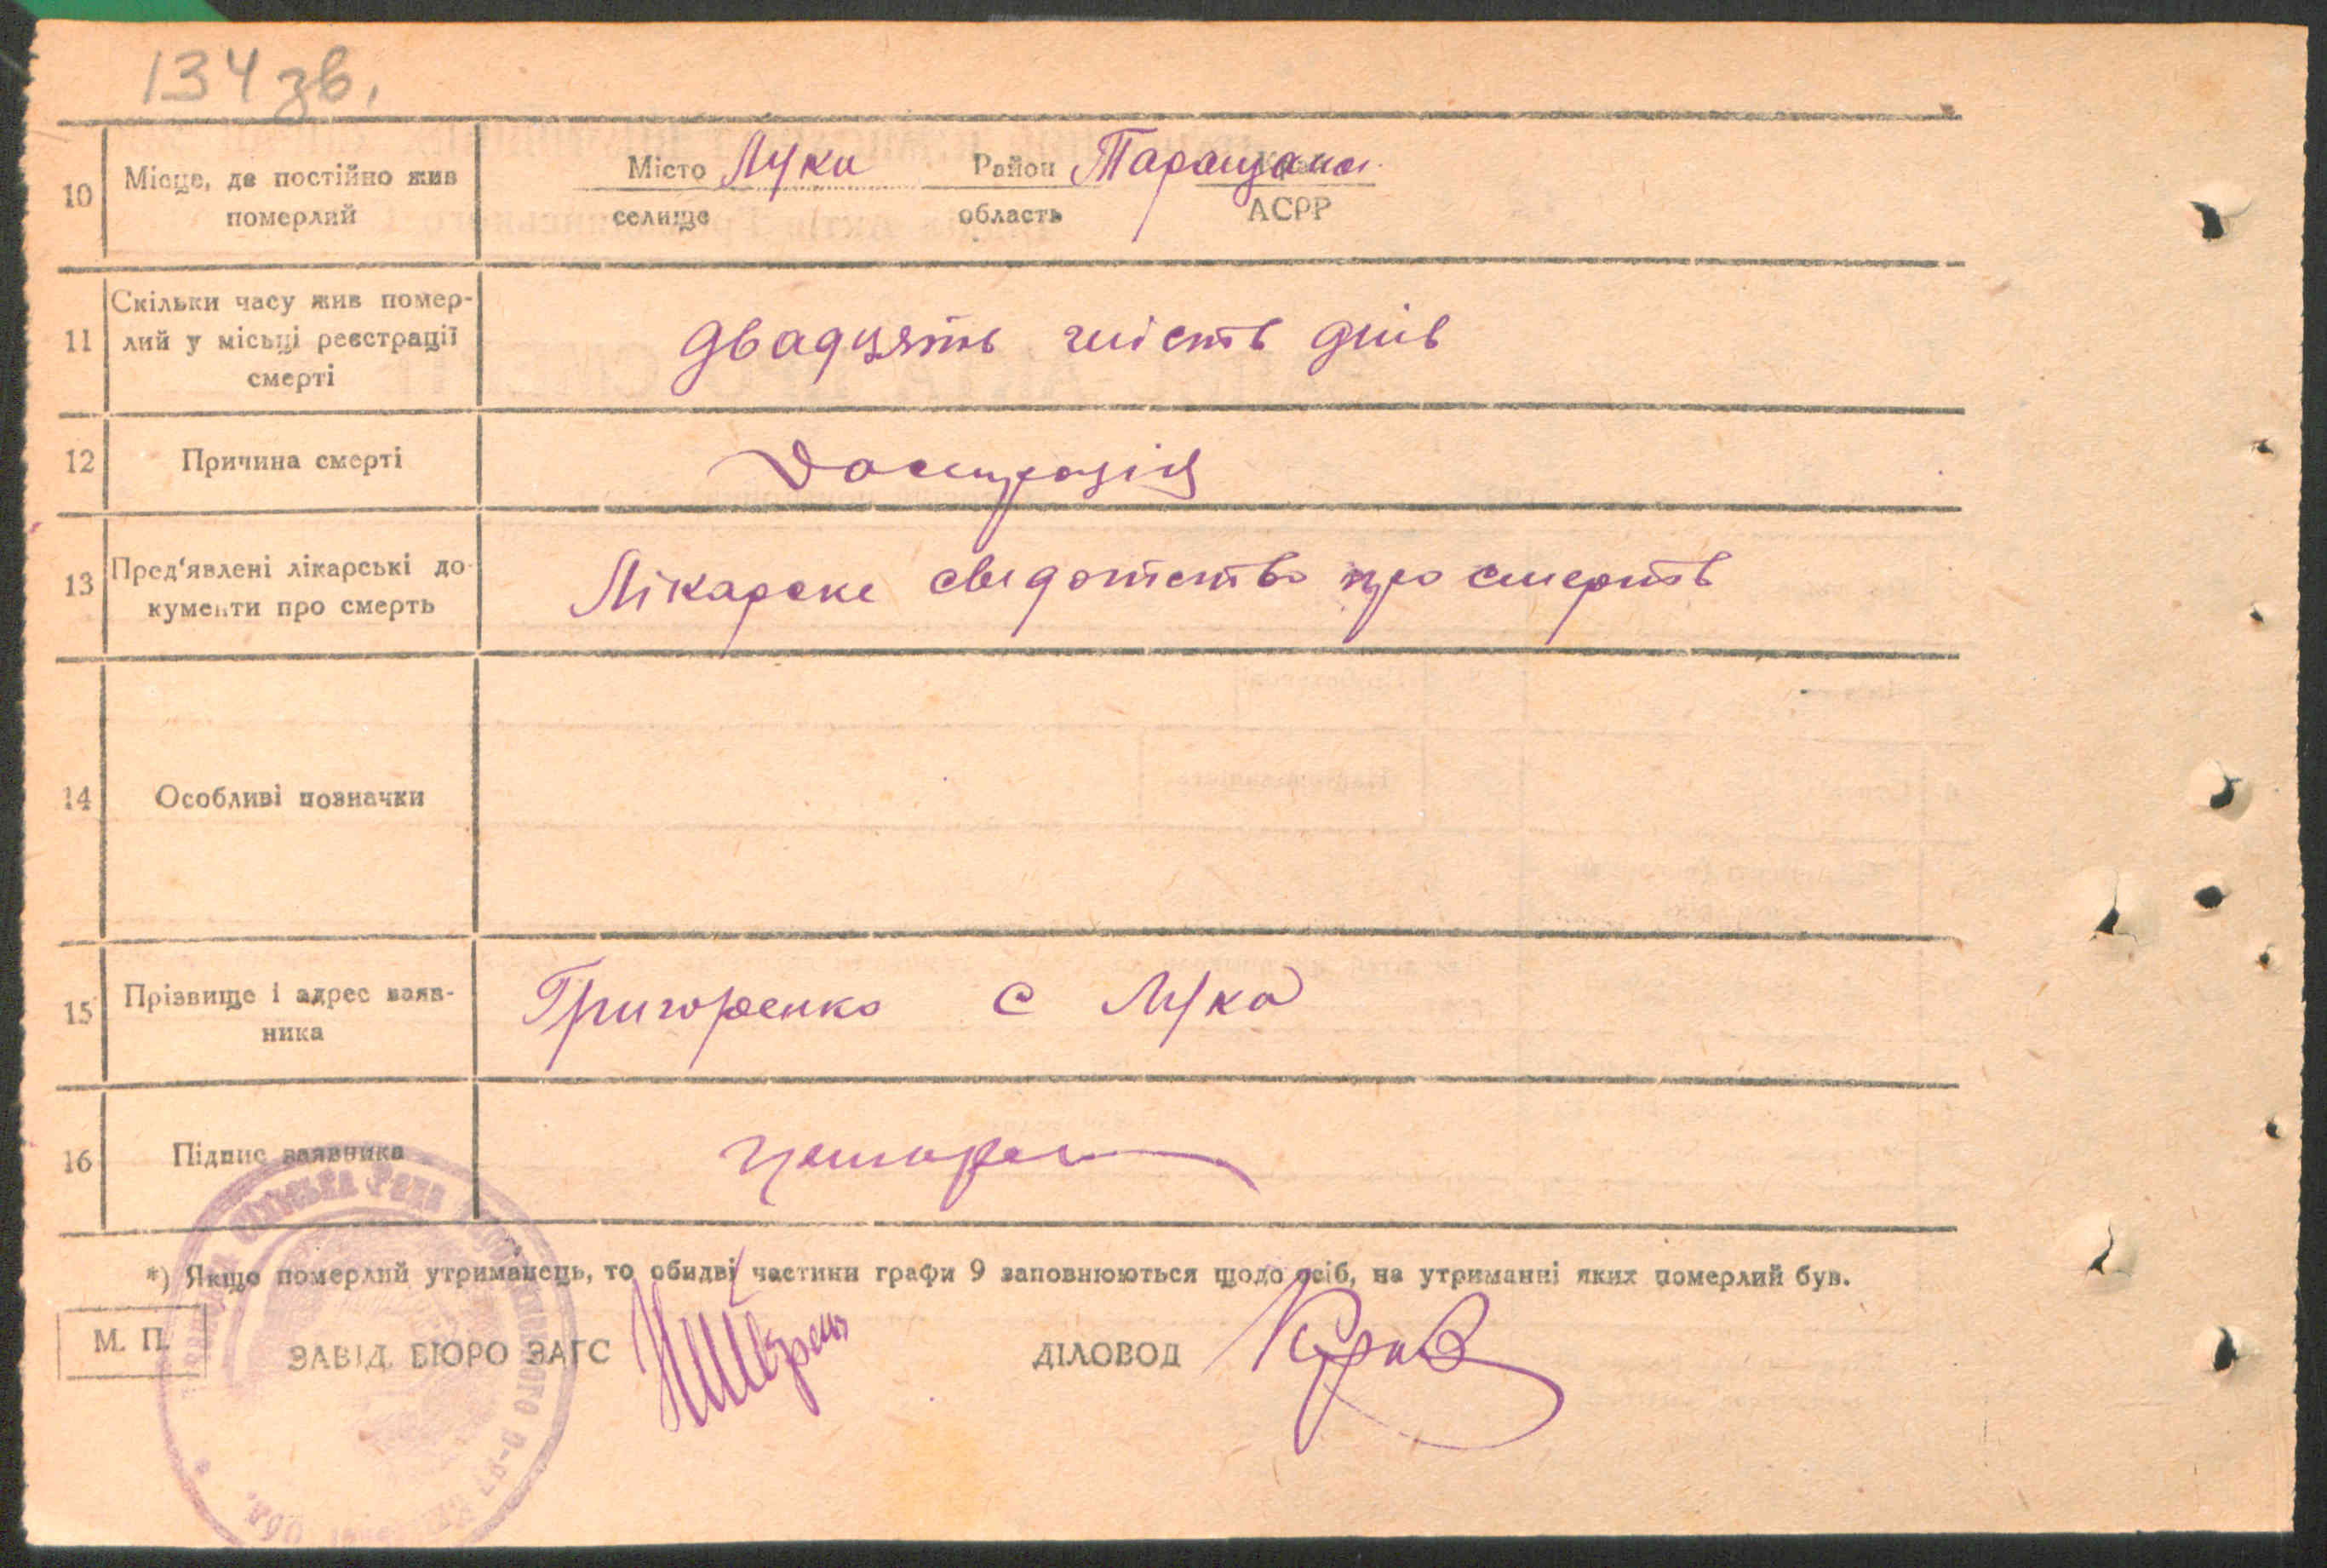 134 зв.
10 Місце, де постійно жив померлий
Місто Луки Район Таращана
селище область АСРР
11 Скільки часу жив помер-
лий у місьці реєстрації
смерті
двадцять шість днів
12 Причина смерті
13 Пред'явлені лікарські до-
кументи про смерть
Лікарске свидотство про смерть
14 Особливі позначки
15 Прізвище і адрес заяв-
ника
Григоренко с Лука
16 Підпис заявника
*) Якщо померлий утриманець, то обидві частини графи 9 заповнюються щодо осіб, на утриманні яких померлий був.
М. П.
ЗАВІД. БЮРО ЗАГС
ДІЛОВОД